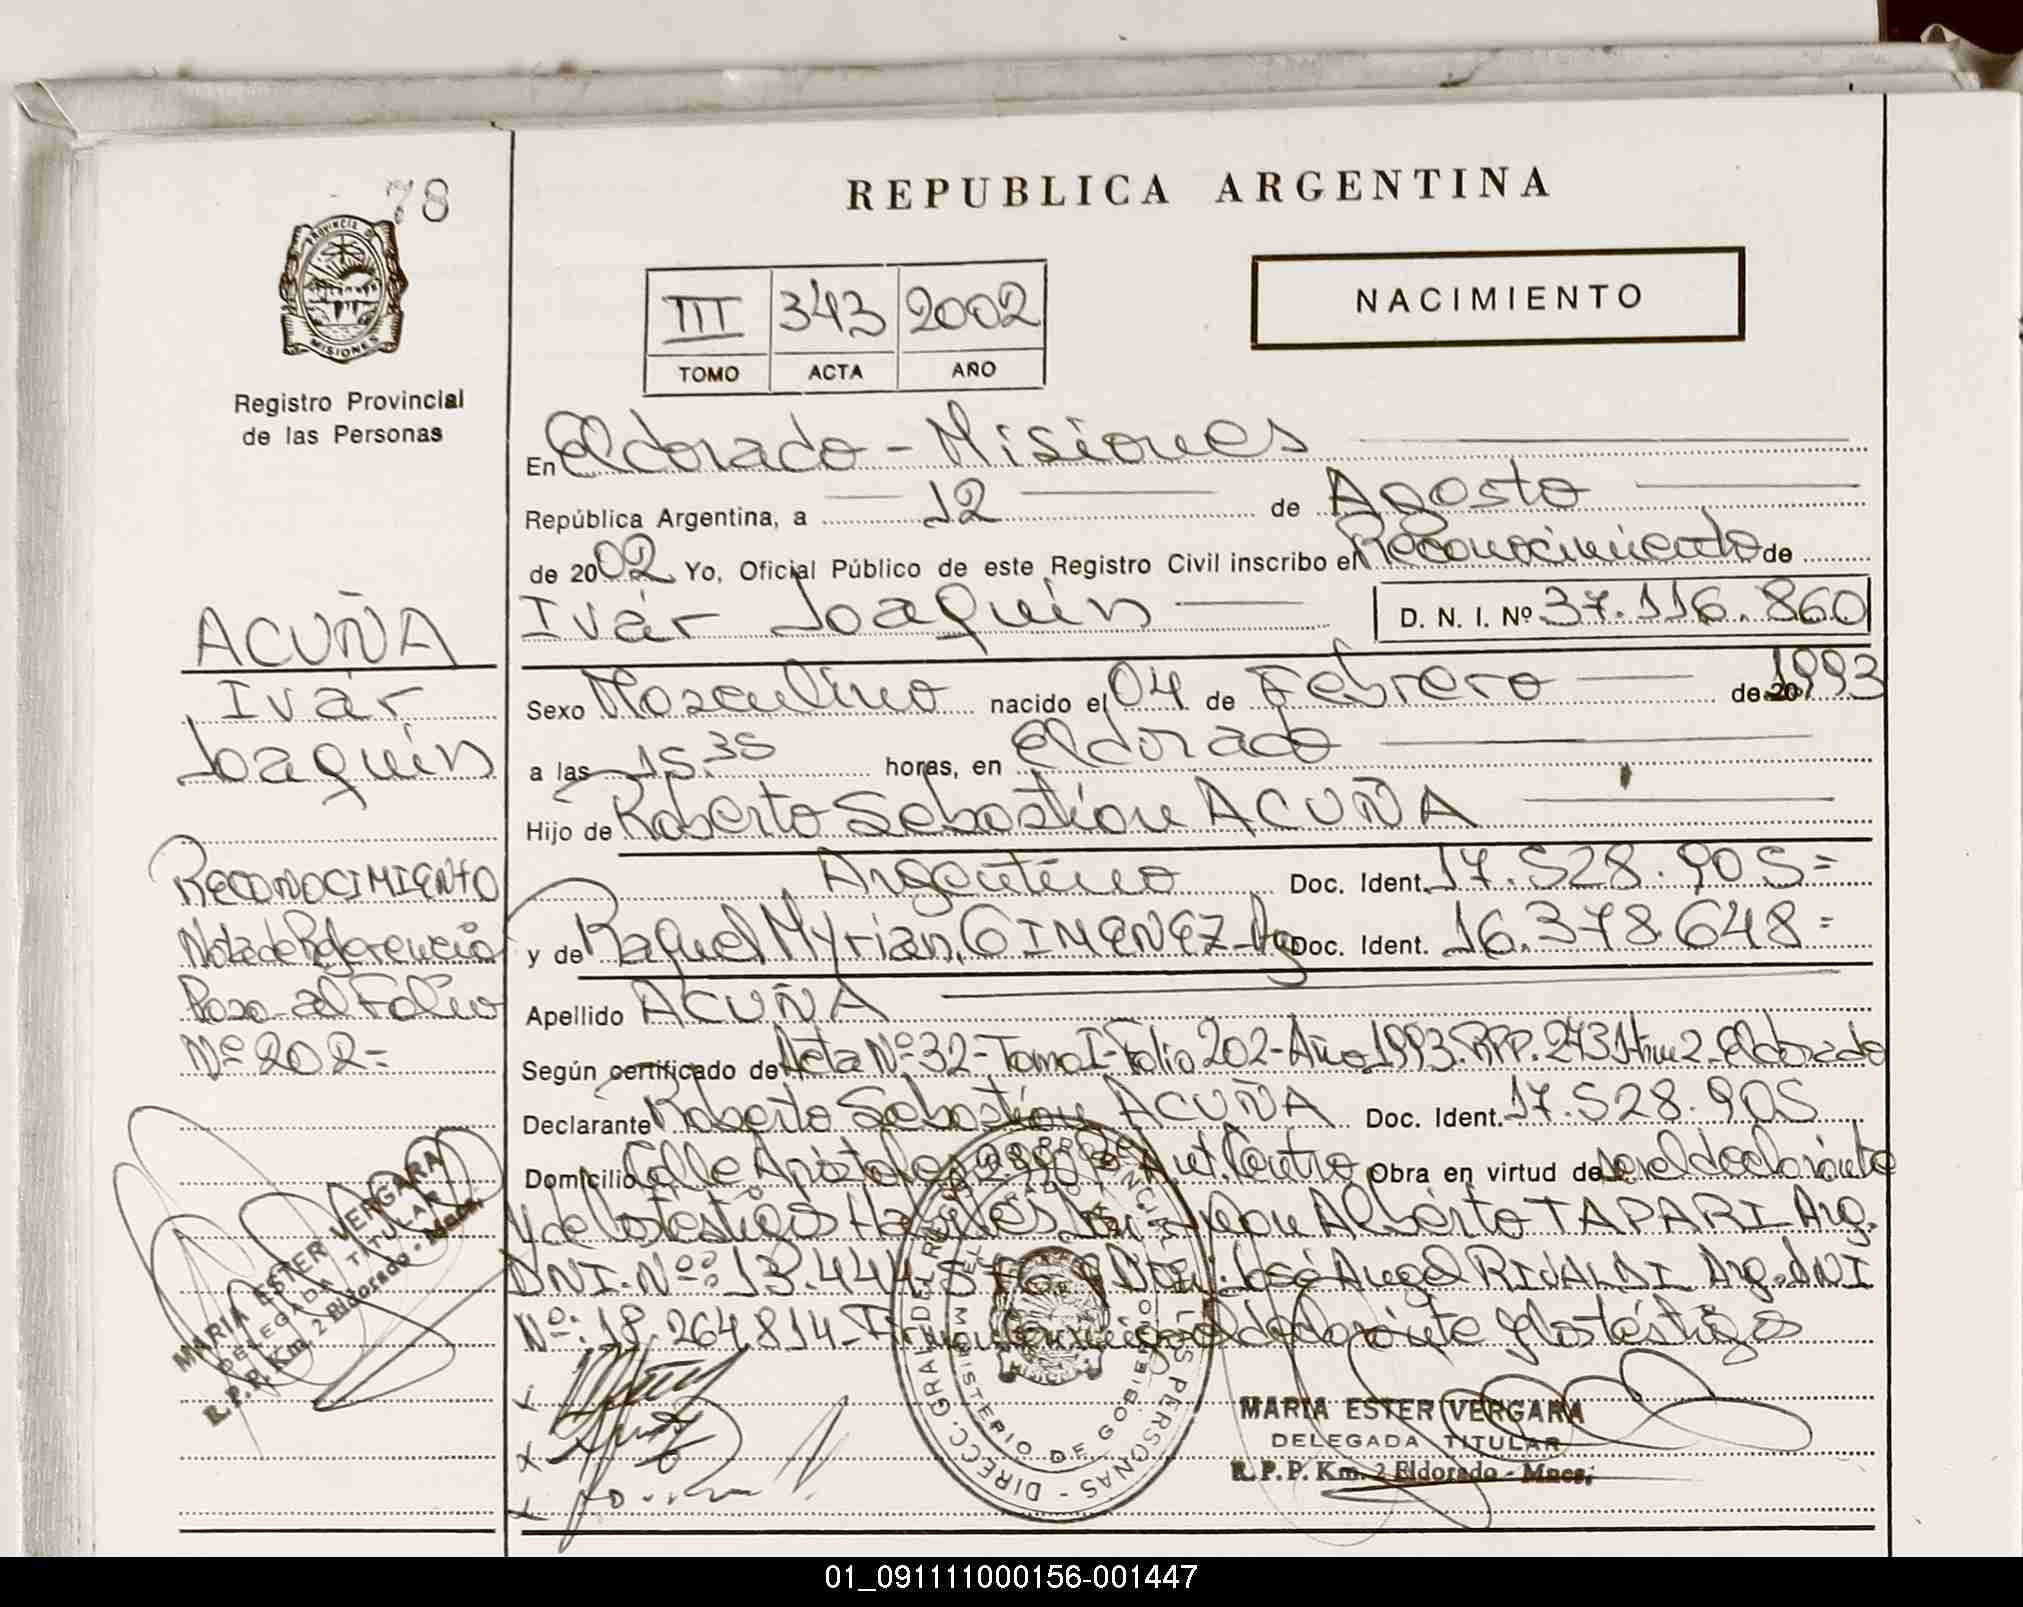 78
PROVINCIA DE
MISIONES
Registro Provincial
de las Personas
REPUBLICA ARGENTINA
III 343 2002
TOMO ACTA AÑO
NACIMIENTO
En Eldorado - Misiones
República Argentina, a 12 de Agosto
de 2002 Yo, Oficial Público de este Registro Civil inscribo el Reconocimiento de
Ivár Joaquin D. N. I. Nº 37.116.860
Sexo Masculino nacido el 04 de Febrero de 20 1993
a las 15.35 horas, en Eldorado
Hijo de Roberto Sebastian ACUÑA
Argentino Doc. Ident. 17.528.905=
y de Raquel Myrian GIMENEZ - Arg Doc. Ident. 16.378.648=
Apellido ACUÑA
Según certificado de Acta Nº 32 - Tomo I - Folio 202 - Año 1993. RPP. 2431 Km 2. Eldorado
Declarante Roberto Sebastian ACUÑA Doc. Ident. 17.528.905
Domicilio Calle Apóstoles Centro Obra en virtud de ser el declarante
y de los testigos Habiles Alberto TAPARI Arg.
DNI. Nº: 13.444 José Angel RIVALDI Arg. DNI
Nº: 18.264.814 - Firman el declarante y los testigos
ACUÑA
Ivár
Joaquin
RECONOCIMIENTO
Nota de Referencia
Paso al Folio
Nº 202=
MARIA ESTER VERGARA
DELEGADA TITULAR
R.P.P. Km. 2 Eldorado - Mnes.
DIRECC. GRAL DEL REG. PROVINCIAL DE LAS PERSONAS
MINISTERIO DE GOBIERNO
MARIA ESTER VERGARA
DELEGADA TITULAR
R.P.P. Km. 2 Eldorado - Mnes.
01_091111000156-001447